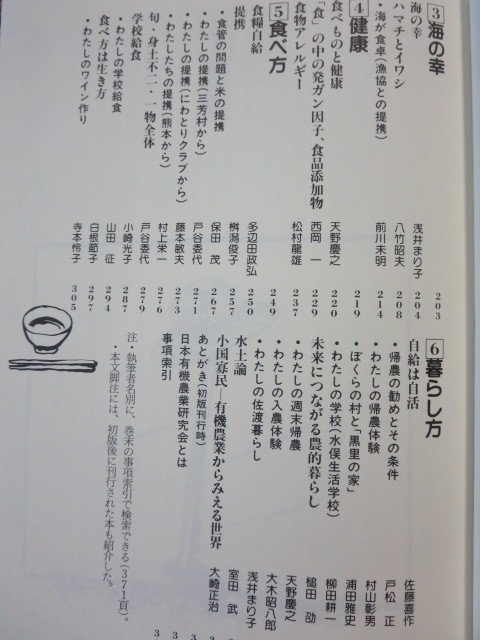 3 海の幸
海の幸 浅井まり子 203
ハマチとイワシ 八竹昭夫 208
・海が食卓(漁協との提携) 前川末明 214
4 健康 219
食べものと健康 天野慶之 220
「食」の中の発ガン因子、食品添加物 西岡 一 229
食物アレルギー 松村龍雄 237
5 食べ方 249
食糧自給 多辺田政弘 250
提携 桝潟俊子 257
・食管の問題と米の提携 保田 茂 267
・わたしの提携(三芳村から) 戸谷委代 271
・わたしの提携(にわとりクラブから) 藤本敏夫 273
・わたしたちの提携(熊本から) 村上栄一 276
旬・身土不二・一物全体 戸谷委代 279
学校給食 小崎光子 287
・わたしの学校給食 山田 征 294
食べ方は生き方 白根節子 297
・わたしのワイン作り 寺本怜子 305
6 暮らし方
自給は自活 佐藤喜作
・帰農の勧めとその条件 戸松 正
・わたしの帰農体験 村山彰男
・ぼくらの村と「黒里の家」 浦田雅史
・わたしの学校(水俣生活学校) 柳田耕一
未来につながる農的暮らし 槌田 劭
・わたしの週末帰農 天野慶之
・わたしの入農体験 大木昭八郎
・わたしの佐渡暮らし 浅井まり子
水土論 室田 武
小国寡民―有機農業からみえる世界 大崎正治
あとがき(初版刊行時) 3
日本有機農業研究会とは 3
事項索引 3
注・執筆者名別に、巻末の事項索引で検索できる(371頁)。
・本文脚注には、初版後に刊行された本も紹介した。